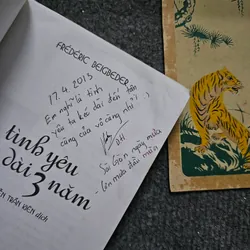 FRÉDÉRIC BEIGBEDER
17.4.2013
Em nghĩ là tình
yêu ta kéo dài đến tận
cùng của vô cùng nhỉ
Sài Gòn ngày mưa
lên màu đầu mùa
tình yêu
dài 3 năm
TRẦN KIÊN dịch